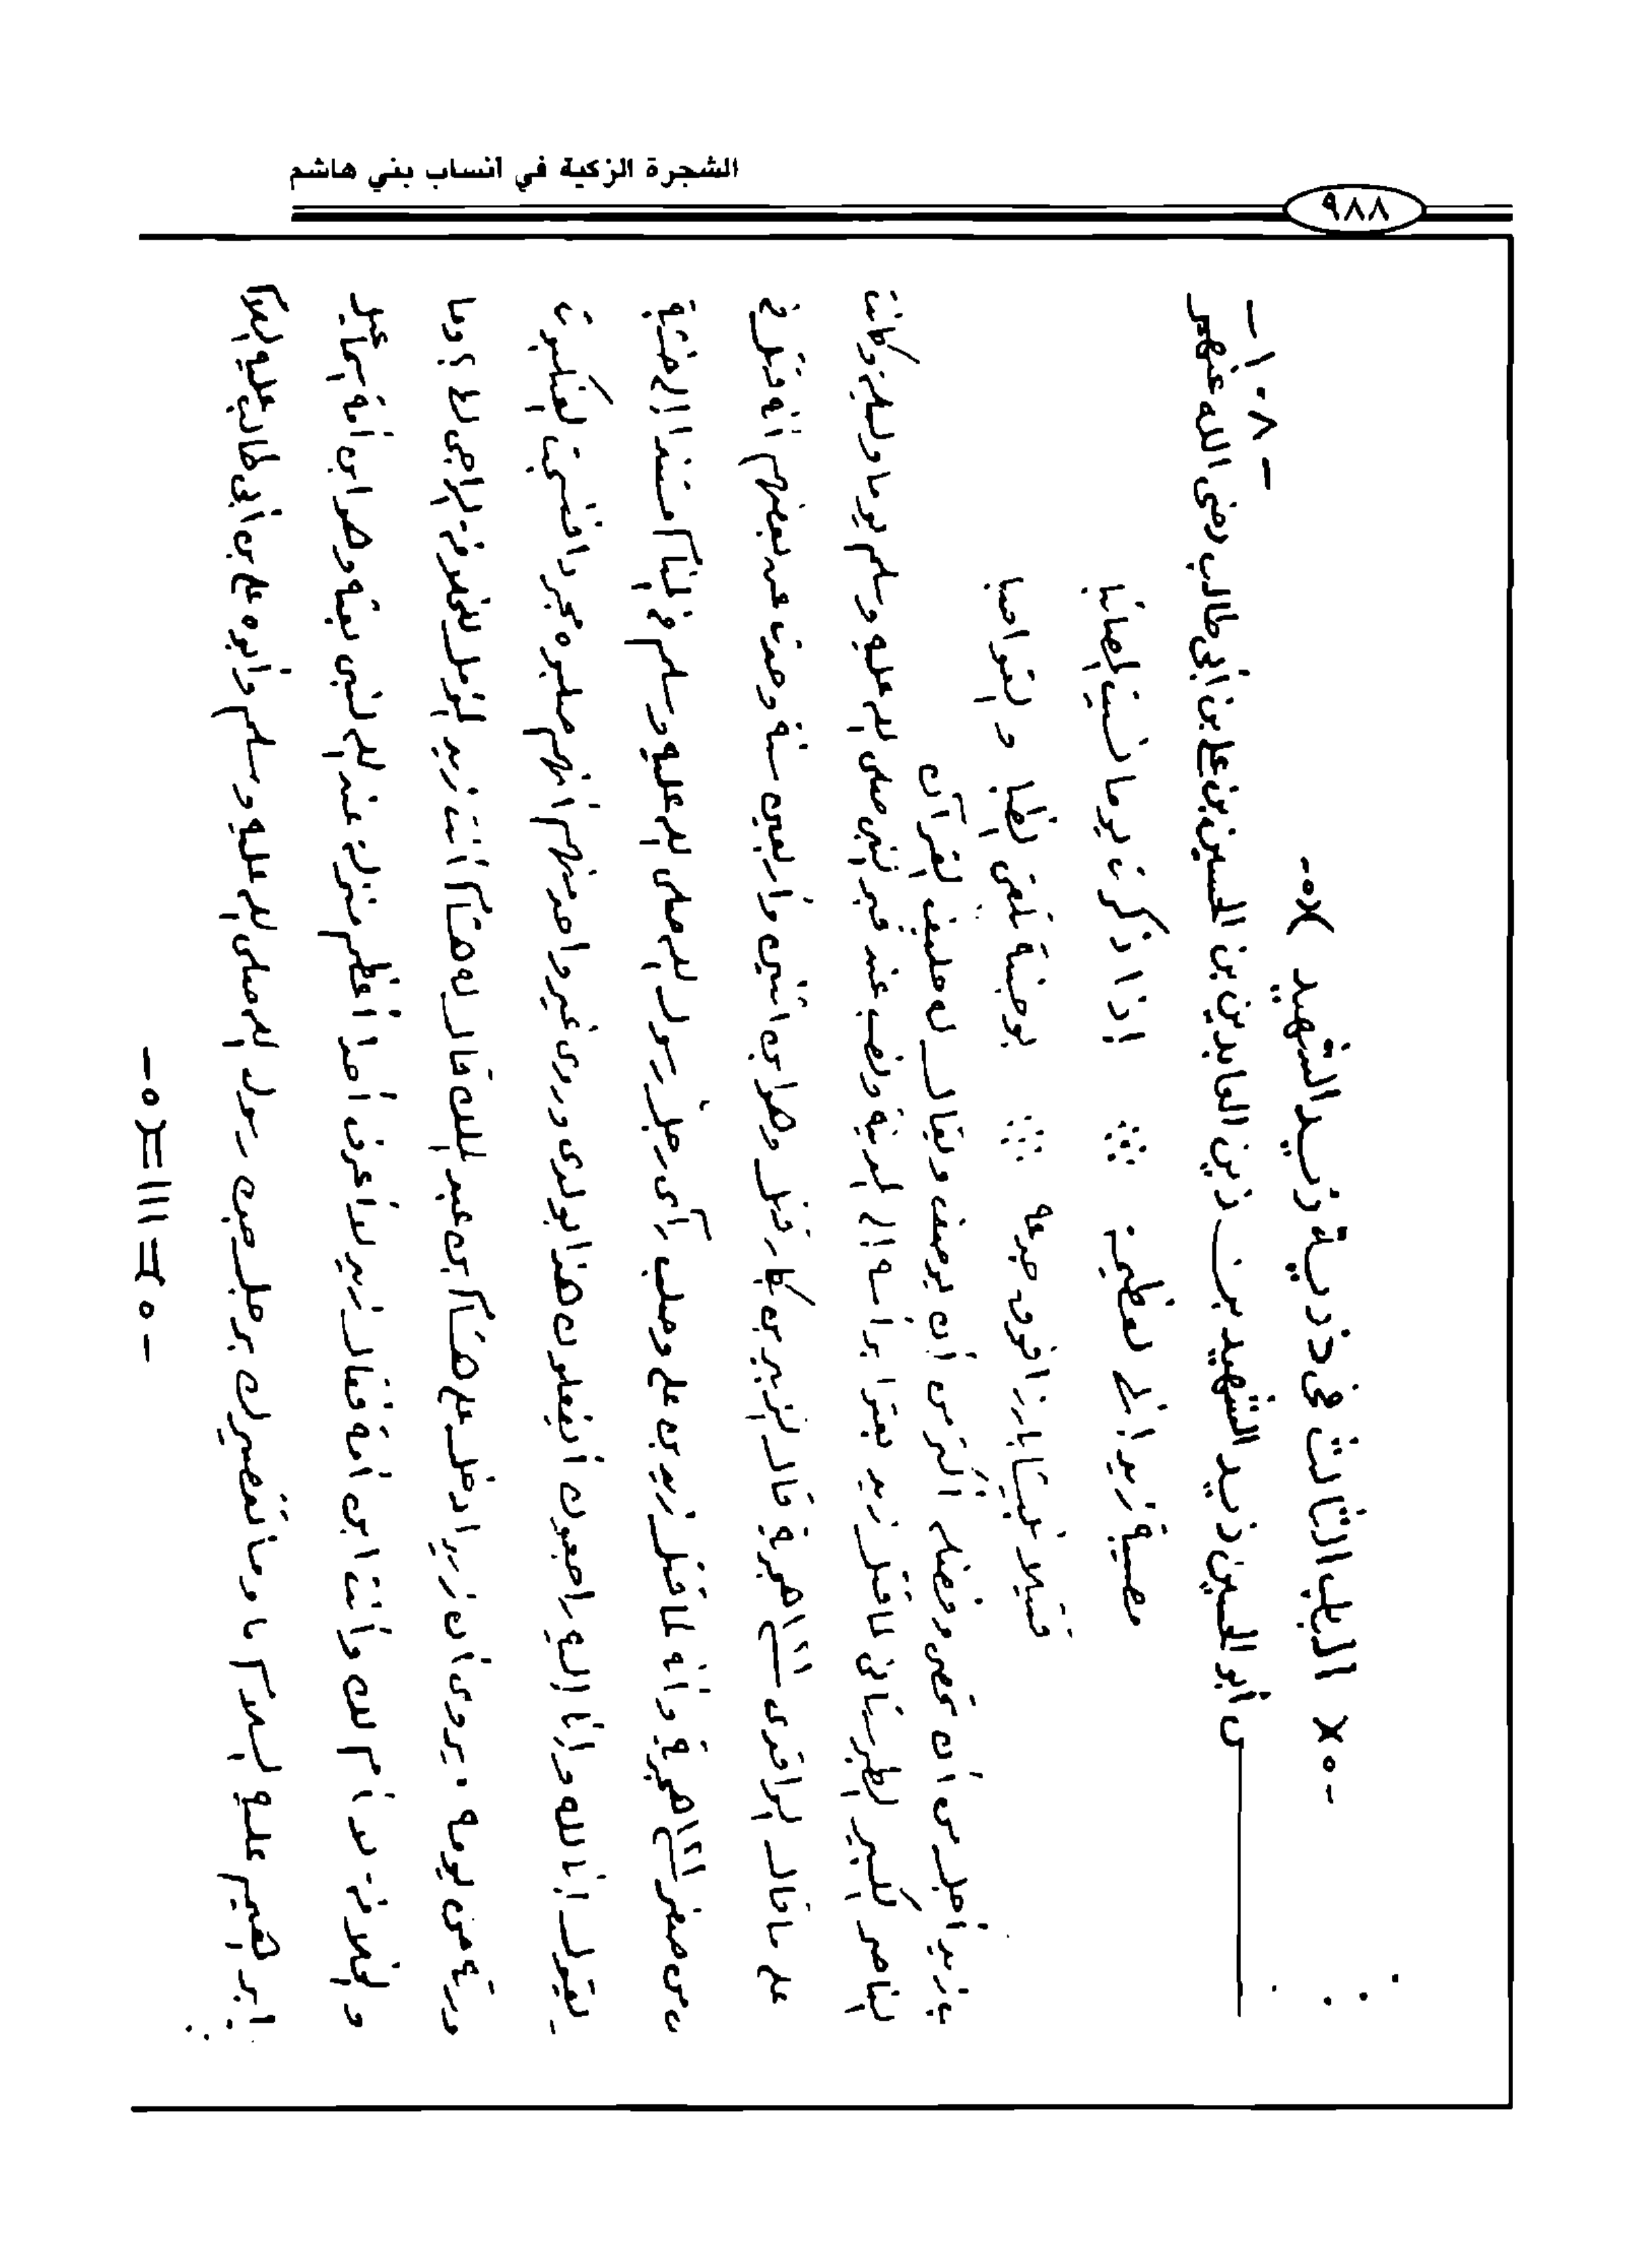 الشجرة الزكية في أنساب بني هاشم
٩٨٨
- ١٠٨ -
-٥× الباب الثالث في ذرية زيد الشهيد ×٥-
س أبو الحسين زيد الشهيد بن زين العابدين بن الحسين بن علي بن أبي طالب رضي الله عنهم
مصيبة زيد اذا ذكرت يوما نسيت المصائبا
قتيلا فوق جذعة بوجنة تلقى الظبا و القواضبا
زيد أجل من أن تحصى و فضله أكثر من أن يوصف ويقال له حليف القرآن
الناصر الكبير الطبرستاني لما قتل زيد بعثوا برأسه الى المدينة ونصب عند قبر النبي صلى الله عليه وسلم يوما وليلة وكانت
على ما قال الواقدى ١٢١ هجرية قال الزبير بن بكار قتل وهو ابن اثنين وأربعين سنة وحدث عن بعضهم انه قتل في
من صفر ١٢١ هجرية وأنه لما قتل زيد بن علي وصلب رآى رجل رسول الله صلى الله عليه وسلم في المنام مستندا الى خشبة
يقول انا لله وانا اليه راجعون أيفعلون هذا بولدى وروى غير واحد منهم أنهم صلبوه مجردا فنسجت العنكبوت
من يومه ٠ يروى أن زيدا دخل على هشام بن عبد الملك قال له هشام أنت زيد المؤمل للخلافة الراجى لها ؟ وما
و الخلافة لا أم لك وأنت ابن أمة فقال زيد لا أعرف أحدا أعظم منزلة عند الله لنبي بعثه وهو ابن أمة
إبرهيم عليه السلام ما وما تقصيرك برجل جده رسول الله صلى الله عليه وسلم وأبوه علي بن أبي طالب عليه السلام